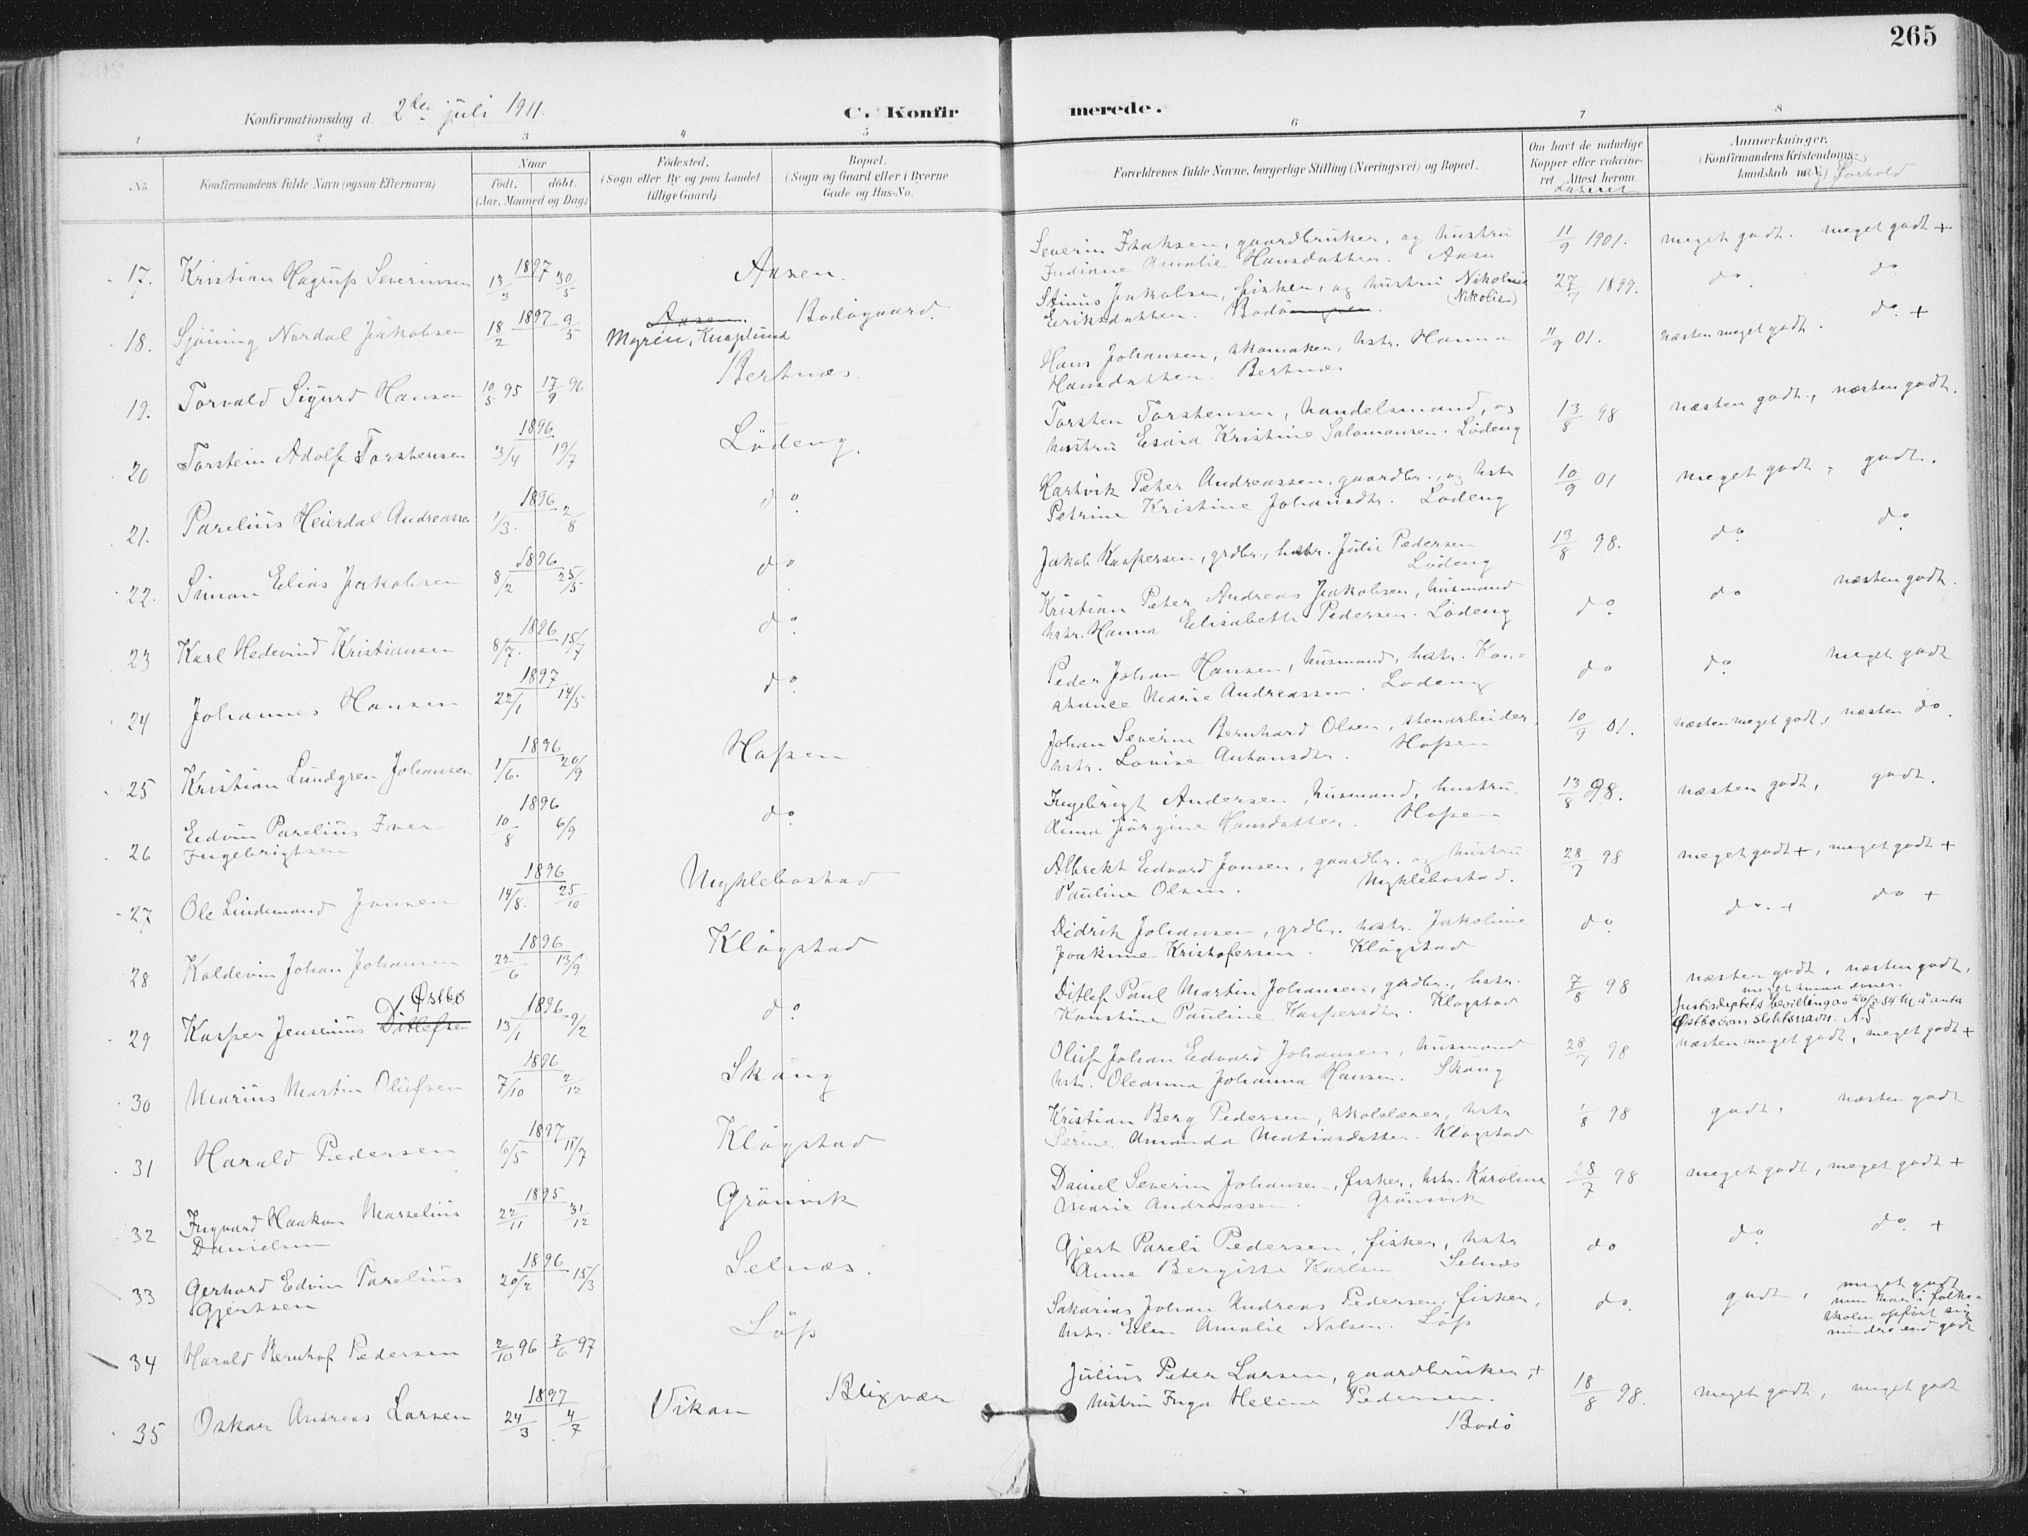 265
Konfirmationsdag d. 2den juli 1911.
C. Konfirmerede.
1 2 3 4 5 6 7 8
No. Konfirmandens fulde Navn (ogsaa Efternavn) Naar født, døbt. (Aar, Maaned og Dag) Fødested. (Sogn eller By og paa Landet tillige Gaard) Bopæl. (Sogn og Gaard eller i Byerne Gade og Hus-No. Forældrenes fulde Navne, borgerlige Stilling (Næringsvei) og Bopæl. Om havt de naturlige Kopper eller vakcineret. Attest herom. Anmærkninger. (Konfirmandens Kristendomskundskab m.v.) og Forhold
17. Kristian Hagrup Severinsen 1897 13/3 30/5 Aasen. Severin Isaksen, gaardbruker, og hustru
Indiane Amalie Hansdatter. Aasen 11/9 1901. meget godt. meget godt +
18. Sjöning Nordal Jakobsen 18/2 1897 9/5 Aasen. Myren, Knaplund Bodögaard. Stinus Jakobsen, fisker, og hustru Nikoline (Nikolise)
Eriksdatter. Bodö 27/7 1899. do do
19. Torvald Sigurd Hansen 10/5 95 17/9 96 Bertnæs. Hans Johansen, skomaker, hstr. Hanna
Hansdatter. Bertnæs 11/9 01. næsten meget godt. do +
20 Torstein Adolf Torstensen 1896 3/4 19/7 Lödeng. Torsten Torstensen, handelsmand, og
hustru Esaia Kristine Salomonsen. Lödeng 13/8 98 næsten godt, næsten godt.
21. Parelius Heierdal Andreassen 1896 1/3. 2/8 do Hartvik Peter Andreassen, gaardbr., og hstr
Petrine Kristine Johansdtr. Lödeng 10/9 01 meget godt, godt.
22. Simon Elias Jakobsen 1896 8/2 25/5 do Jakob Kaspersen, grdbr., hstr. Julie Pedersen
Lödeng 13/8 98. do do
23 Karl Hedevind Kristiansen 1896 8/7. 15/7 do Kristian Peter Andreas Jakobsen, husmand
hstr. Hanna Elisabeth Pedersen. Lödeng do do næsten godt.
24 Johannes Hansen 1897 22/1 14/5 do Peder Johan Hansen, husmand, hstr. Kon-
stance Marie Andreassen. Lödeng do do meget godt
25 Kristian Lundgren Johansen 1896 1/6. 20/9 Hopen Johan Severin Bernhard Olsen, stenarbeider,
hstr. Lovise Antonsdtr. Hopen 10/9 01. næsten meget godt, næsten do.
26 Eidvin Parelius Iver
Ingebrigtsen 1896 10/8 6/9 do Ingebrigt Andersen, husmand, hustru
Anna Jörgine Hansdatter. Hopen 13/8 98. næsten godt, godt.
27 Ole Lindemand Jonsen 1896 14/8. 25/10 Myklebostad Albrekt Edvard Jonsen, gaardbr. og hustru
Pauline Olsen. Myklebostad. 28/7 98 meget godt +, meget godt +
28 Koldevin Johan Johansen 1896 22/6 13/9 Klögstad Didrik Johansen, grdbr. hstr. Jakobine
Joakime Kristofersen. Klögstad do do. + do +
29 Kasper Jensenius Ditlefsen Østbø 1896 13/1 9/2 do Ditlef Paul Martin Johansen, grdbr., hstr.
Konstine Pauline Kaspersdtr. Klögstad 7/8 98 næsten godt, næsten godt,
meget smaa evner.
30 Marius Martin Olufsen 1896 7/10 2/12 Skaug Oluf Johan Edvard Johansen, husmand
hstr. Oleanna Johanna Hansen. Skaug 28/7 98 næsten meget godt, meget godt +
31 Harald Pedersen 1897 6/5 11/7 Klögstad Kristian Berg Pedersen, skolelærer, hstr
Serine Amanda Matiasdatter. Klögstad 1/8 98 godt, næsten godt
32 Ingvard Haakon Marselius
Danielsen 1895 22/11 31/12 Grönvik Daniel Severin Johansen, fisker, hstr. Karoline
Marie Andreassen. Grönsvik 28/7 98 meget godt, meget godt +
33 Gerhard Edvin Parelius
Gjertsen 1896 20/2 15/3 Selnæs. Gjert Pareli Pedersen, fisker, hstr
Anne Bergitte Karlsen Selnæs do do do. +
34 Harald Bernhof Pedersen 2/10 96 7/6 97 Löp Sakarias Johan Andreas Pedersen, fisker,
hstr. Elen Amalie Nilsen. Löp do. godt, meget godt
men har i folke-
skolen opført sig
mindre end godt
35 Oskar Andreas Larsen 1897 24/3 4/7 Vikan Blixvær Julius Peter Larsen, gaardbruker, +
hustru Inga Heline Pedersen.
Bodö 18/8 98. meget godt, meget godt